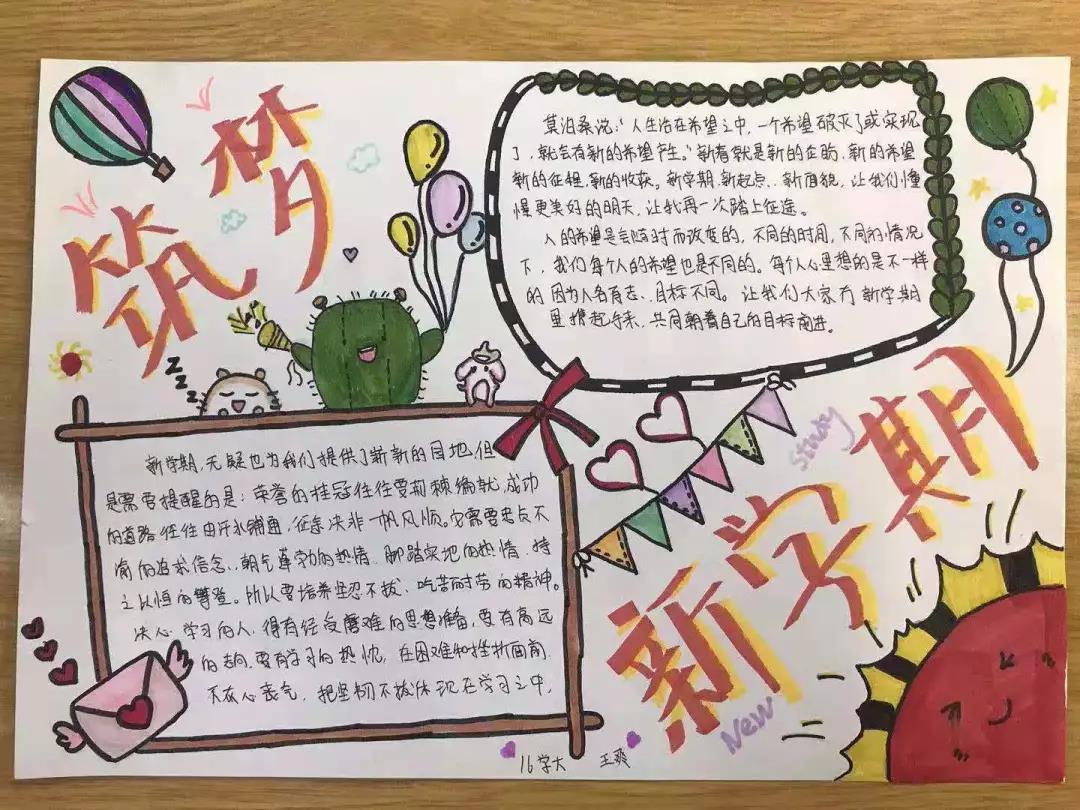 筑梦
新学期
莫泊桑说:“人生活在希望之中,一个希望破灭了或实现
了,就会有新的希望产生。”新春就是新的企盼,新的希望
新的征程,新的收获。新学期,新起点,新面貌,让我们憧
憬更美好的明天,让我再一次踏上征途。
人的希望是会随时而改变的,不同的时间,不同的情况
下,我们每个人的希望也是不同的。每个人心里想的是不一样
的因为人各有志、目标不同。让我们大家在新学期
里携起手来,共同朝着自己的目标前进。
zzz
study
New
新学期,无疑也为我们提供了崭新的园地,但
是需要提醒的是:荣誉的桂冠往往要荆棘编就,成功
的道路往往由汗水铺通,征途决非一帆风顺。它需要忠贞不
渝的追求信念、朝气蓬勃的热情、脚踏实地的热情、持
之以恒的攀登。所以要培养坚忍不拔、吃苦耐劳的精神。
决心学习的人,得有经受磨难的思想准备,要有高远
的志向,要有学习的热忱,在困难和挫折面前
不灰心丧气,把坚韧不拔体现在学习之中,
16学大 王爽